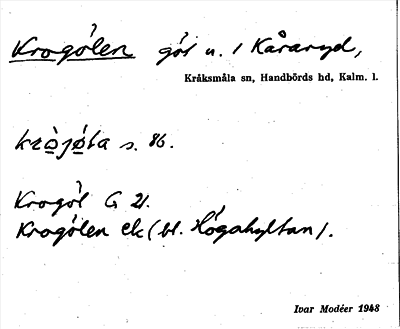 Krogölen göl n. / Kåraryd,
Kråksmåla sn, Handbörds hd, Kalm. l.
s. 86.
Krogöl G 21.
Krogölen Ek (bl. Högahyltan).
Ivar Modéer 1948